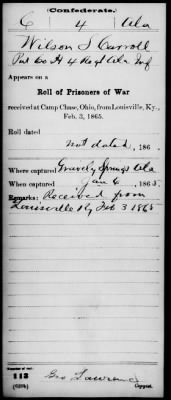 (Confederate.)
C 4 Ala
Wilson S Carroll
Pvt Co H 4 Regt Ala Inf
Appears on a
Roll of Prisoners of War
received at Camp Chase, Ohio, from Louisville, Ky.,
Feb. 3, 1865.
Roll dated
not dated, 186 .
Where captured Gravely Springs Ala
When captured Jan 6, 1865.
Remarks: Received from
Louisville Ky Feb 3 1865
Number of roll:
113
Geo Lawrence
Copyist.